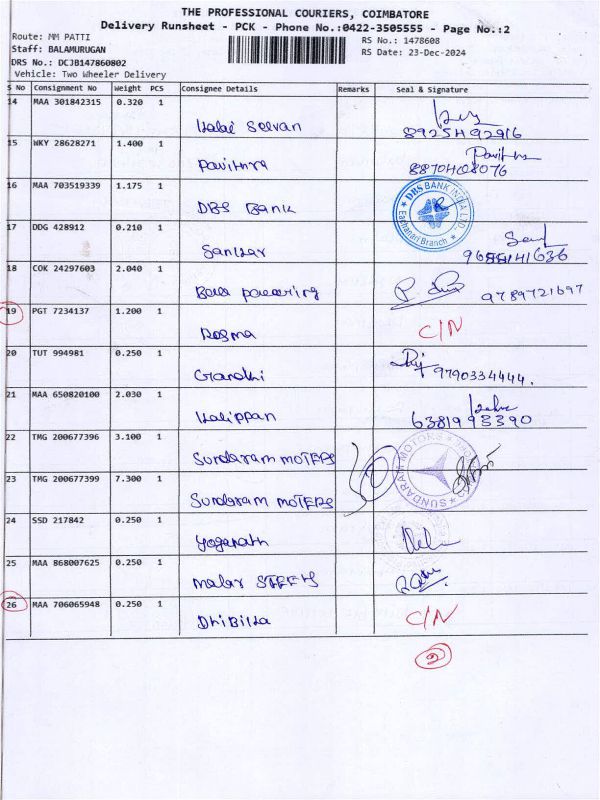 THE PROFESSIONAL COURIERS, COIMBATORE
Delivery Runsheet - PCK - Phone No.:0422-3505555 - Page No.:2
Route: MM PATTI
RS No.: 1478608
Staff: BALAMURUGAN
RS Date: 23-Dec-2024
DRS No.: DCJB147860802
Vehicle: Two Wheeler Delivery
S No Consignment No Weight PCS Consignee Details Remarks Seal & Signature
14 MAA 301842315 0.320 1
Kalai Selvan
15 WKY 28628271 1.400 1
Pavithra 8870408076
16 MAA 703519339 1.175 1
DBS Bank DBS BANK INDIA LTD. Eachanari Branch
17 DDG 428912 0.210 1
Sankar
18 COK 24297603 2.040 1
9789721697
19 PGT 7234137 1.200 1
C/N
20 TUT 994981 0.250 1
Gandhi 9790334444.
21 MAA 650820100 2.030 1
Kalippan 6381993390
22 TMG 200677396 3.100 1
Sundaram MOTERS SUNDARAM MOTORS
23 TMG 200677399 7.300 1
Sundaram MOTERS
24 SSD 217842 0.250 1
Yoganath
25 MAA 868007625 0.250 1
Malar STEELS
26 MAA 706065948 0.250 1
Dhibika C/N
2